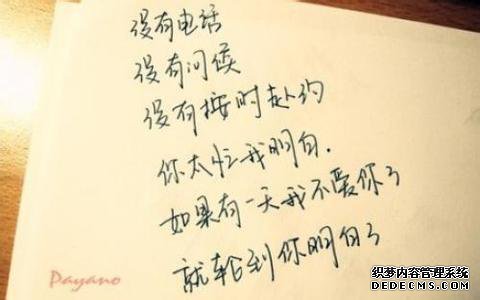 没有电话
没有问候
没有按时赴约
你太忙我明白.
如果有一天我不爱你了
就轮到你明白了
Payano
织梦内容管理系统
DEDECMS.COM